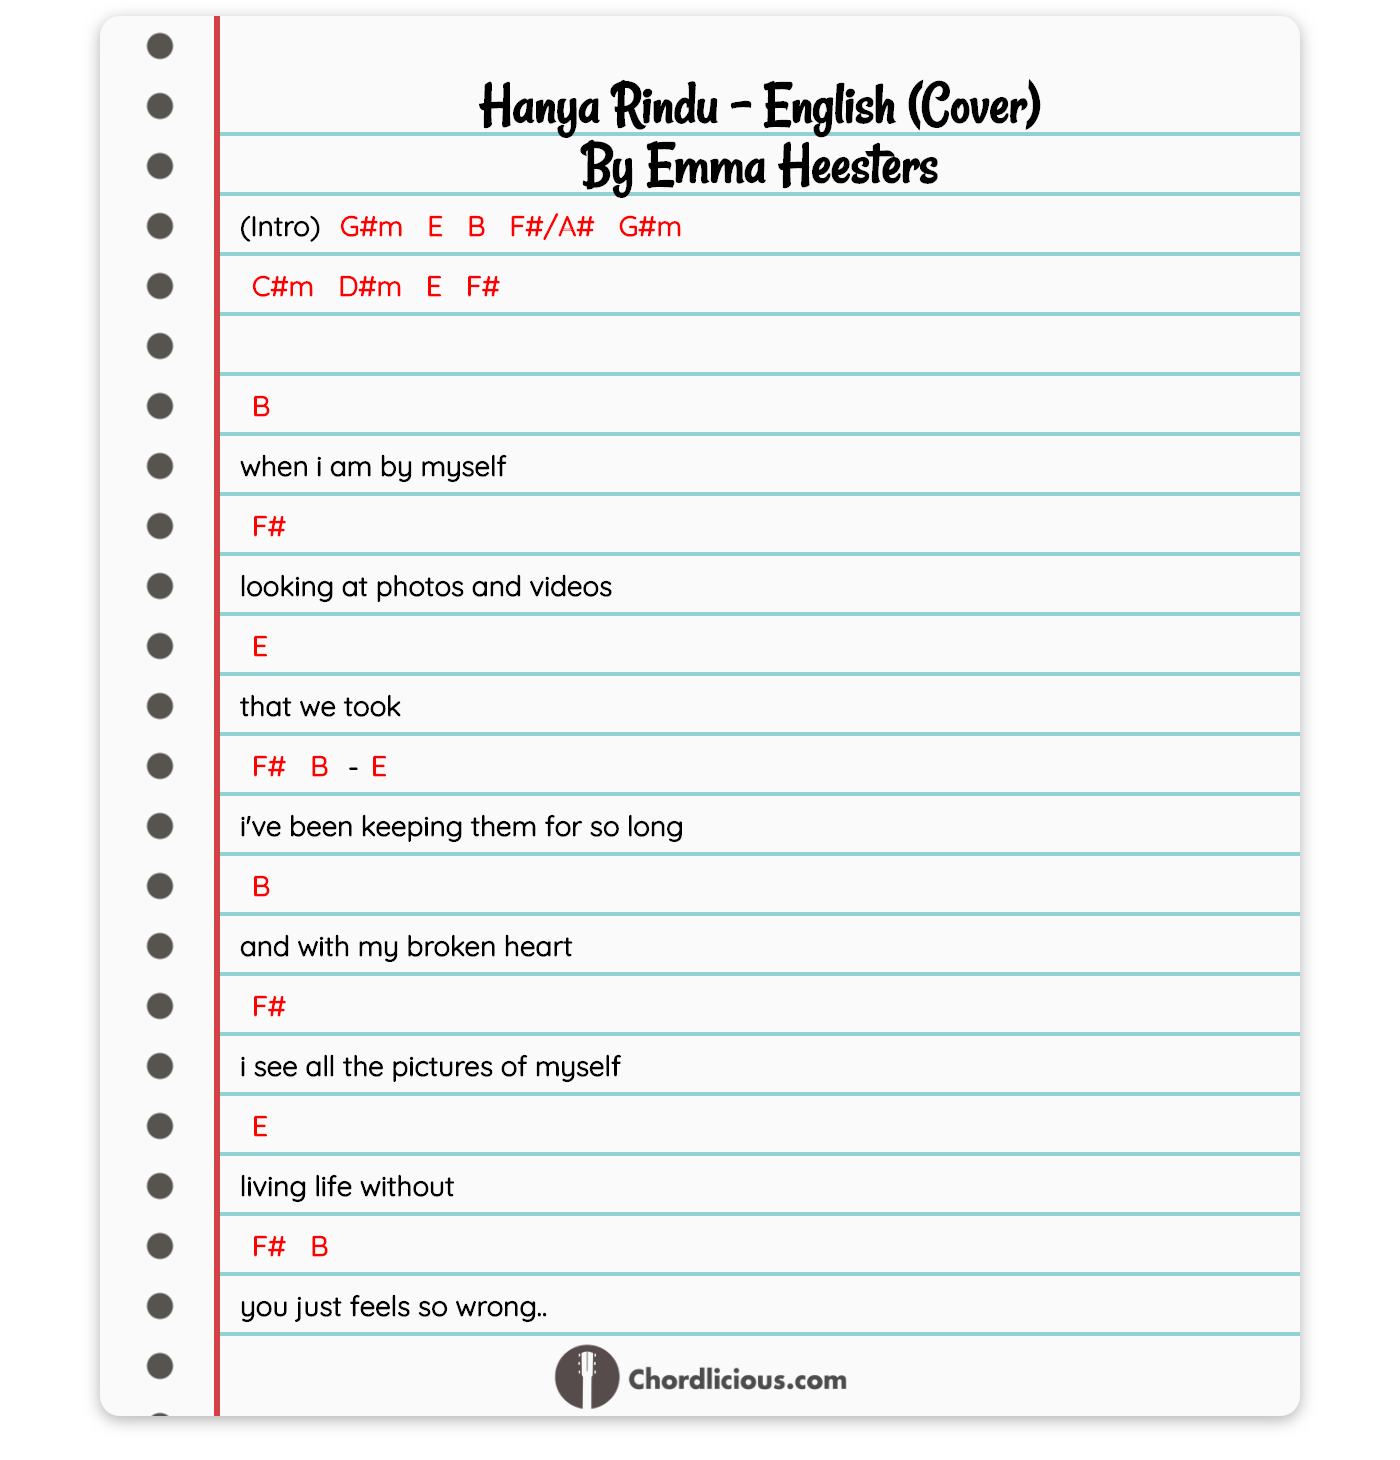 Hanya Rindu - English (Cover)
By Emma Heesters
(Intro) G#m E B F#/A# G#m
C#m D#m E F#
B
when i am by myself
F#
looking at photos and videos
E
that we took
F# B - E
i've been keeping them for so long
B
and with my broken heart
F#
i see all the pictures of myself
E
living life without
F# B
you just feels so wrong..
Chordlicious.com